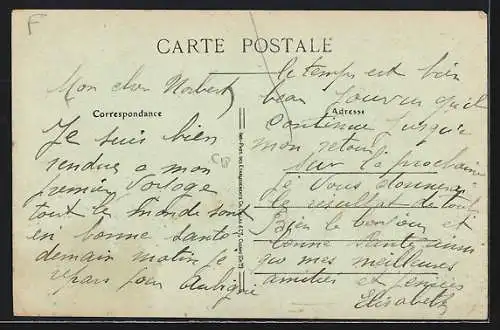 F
CARTE POSTALE
Correspondance
Adresse
Mon cher Norbert
Je suis bien
rendue a mon
premier voyage
tout le monde sont
en bonne santé
demain matin je
repars pour Aubigné
CB
le temps est bien
beau pourvu qu'il
continue jusqu'a
mon retour
sur la prochaine
je vous donnerai
le resultat de tout
bien le bonjour et
bonne santé ainsi
que mes meilleures
amities et pensées
Elisabeth